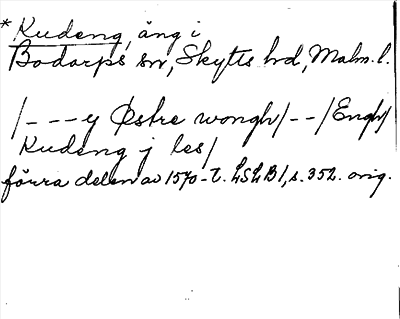 *Kudeng, äng i
Bodarps sn, Skytts hd, Malm. l.
/---y Østre wongh/--/Engh/
Kudeng j les/
förra delen av 1570-t. LSLB1, s. 352. orig.